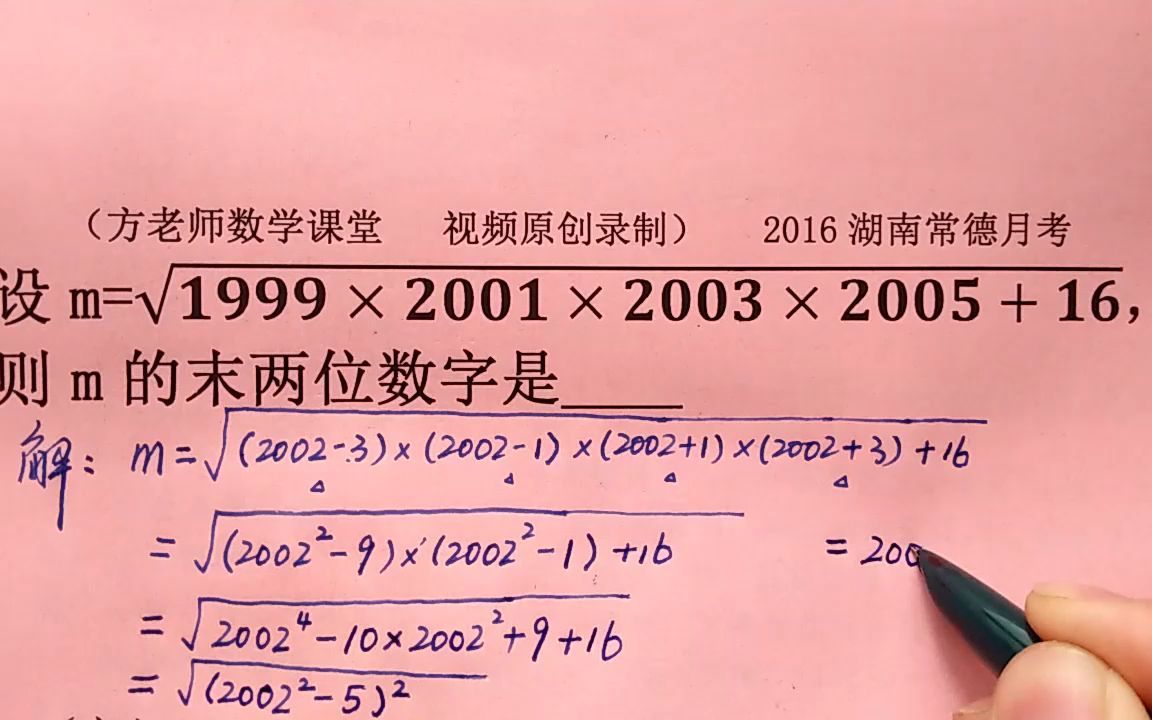 （方老师数学课堂 视频原创录制） 2016 湖南常德月考
设 m=√1999 × 2001 × 2003 × 2005 + 16,
则 m 的末两位数字是____
解: m = √(2002-3)×(2002-1)×(2002+1)×(2002+3)+16
= √(2002²-9)×(2002²-1)+16
= 200
= √2002⁴-10×2002²+9+16
= √(2002²-5)²